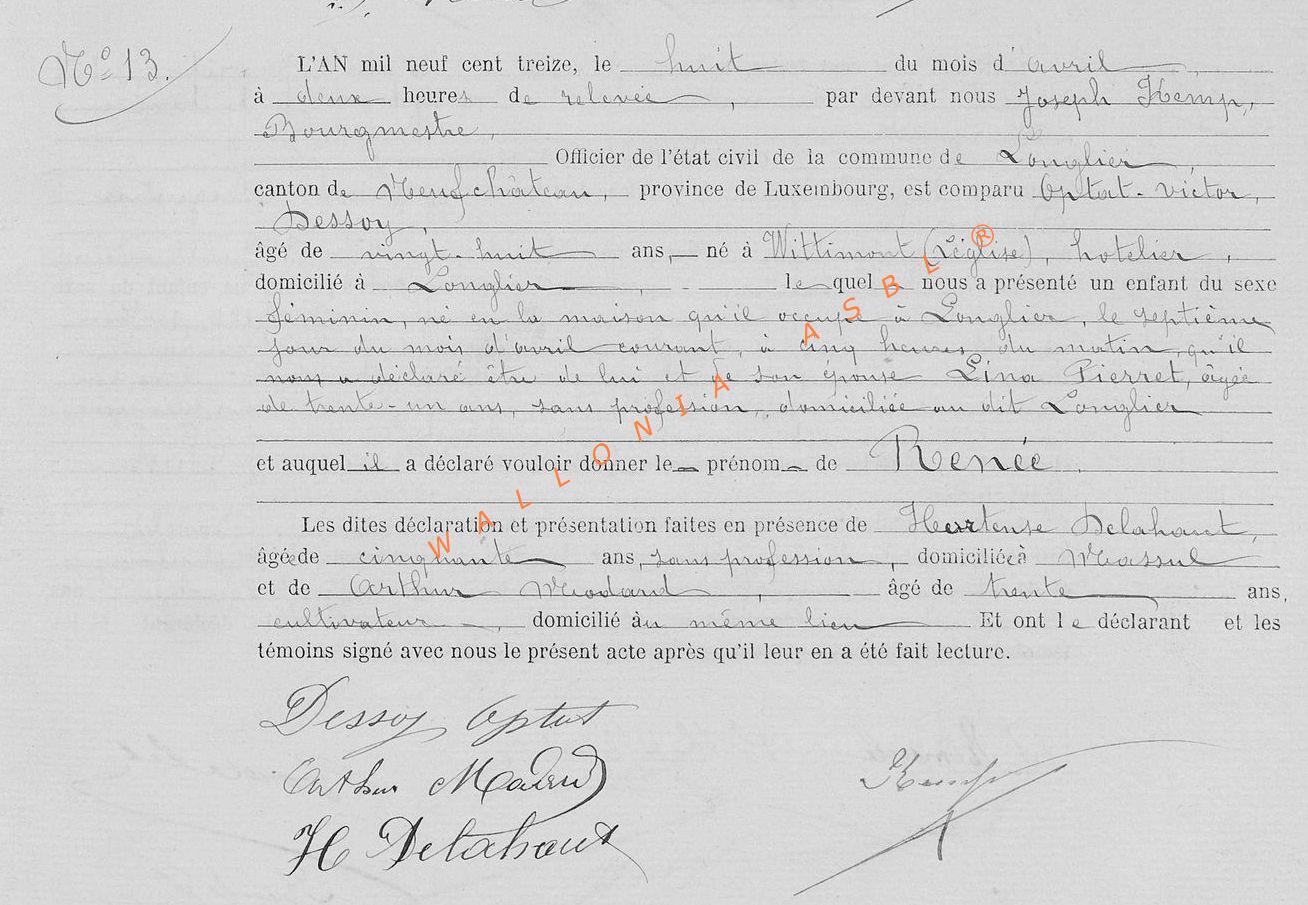 N° 13.
L'AN mil neuf cent treize, le huit du mois d'avril,
à deux heures de relevée, par devant nous Joseph Kemp,
Bourgmestre,
Officier de l'état civil de la commune de Longlier,
canton de Neufchâteau, province de Luxembourg, est comparu Optat-Victor,
Dessoy,
âgé de vingt-huit ans, né à Wittimont (Léglise), hotelier,
domicilié à Longlier, lequel nous a présenté un enfant du sexe
féminin, né en la maison qu'il occupe à Longlier, le septième
jour du mois d'avril courant, à cinq heures du matin, qu'il
nous a déclaré être de lui et de son épouse Lina Pierret, âgée
de trente-un ans, sans profession, domiciliée au dit Longlier
et auquel il a déclaré vouloir donner le prénom de Renée.
Les dites déclaration et présentation faites en présence de Hortense Delahaut,
âgée de cinquante ans, sans profession, domiciliée à Massul
et de Arthur Modard, âgé de trente ans,
cultivateur, domicilié au même lieu Et ont le déclarant et les
témoins signé avec nous le présent acte après qu'il leur en a été fait lecture.
Dessoy Optat
Arthur Modard
Kemp
H Delahaut
WALLONIA ASBL ®